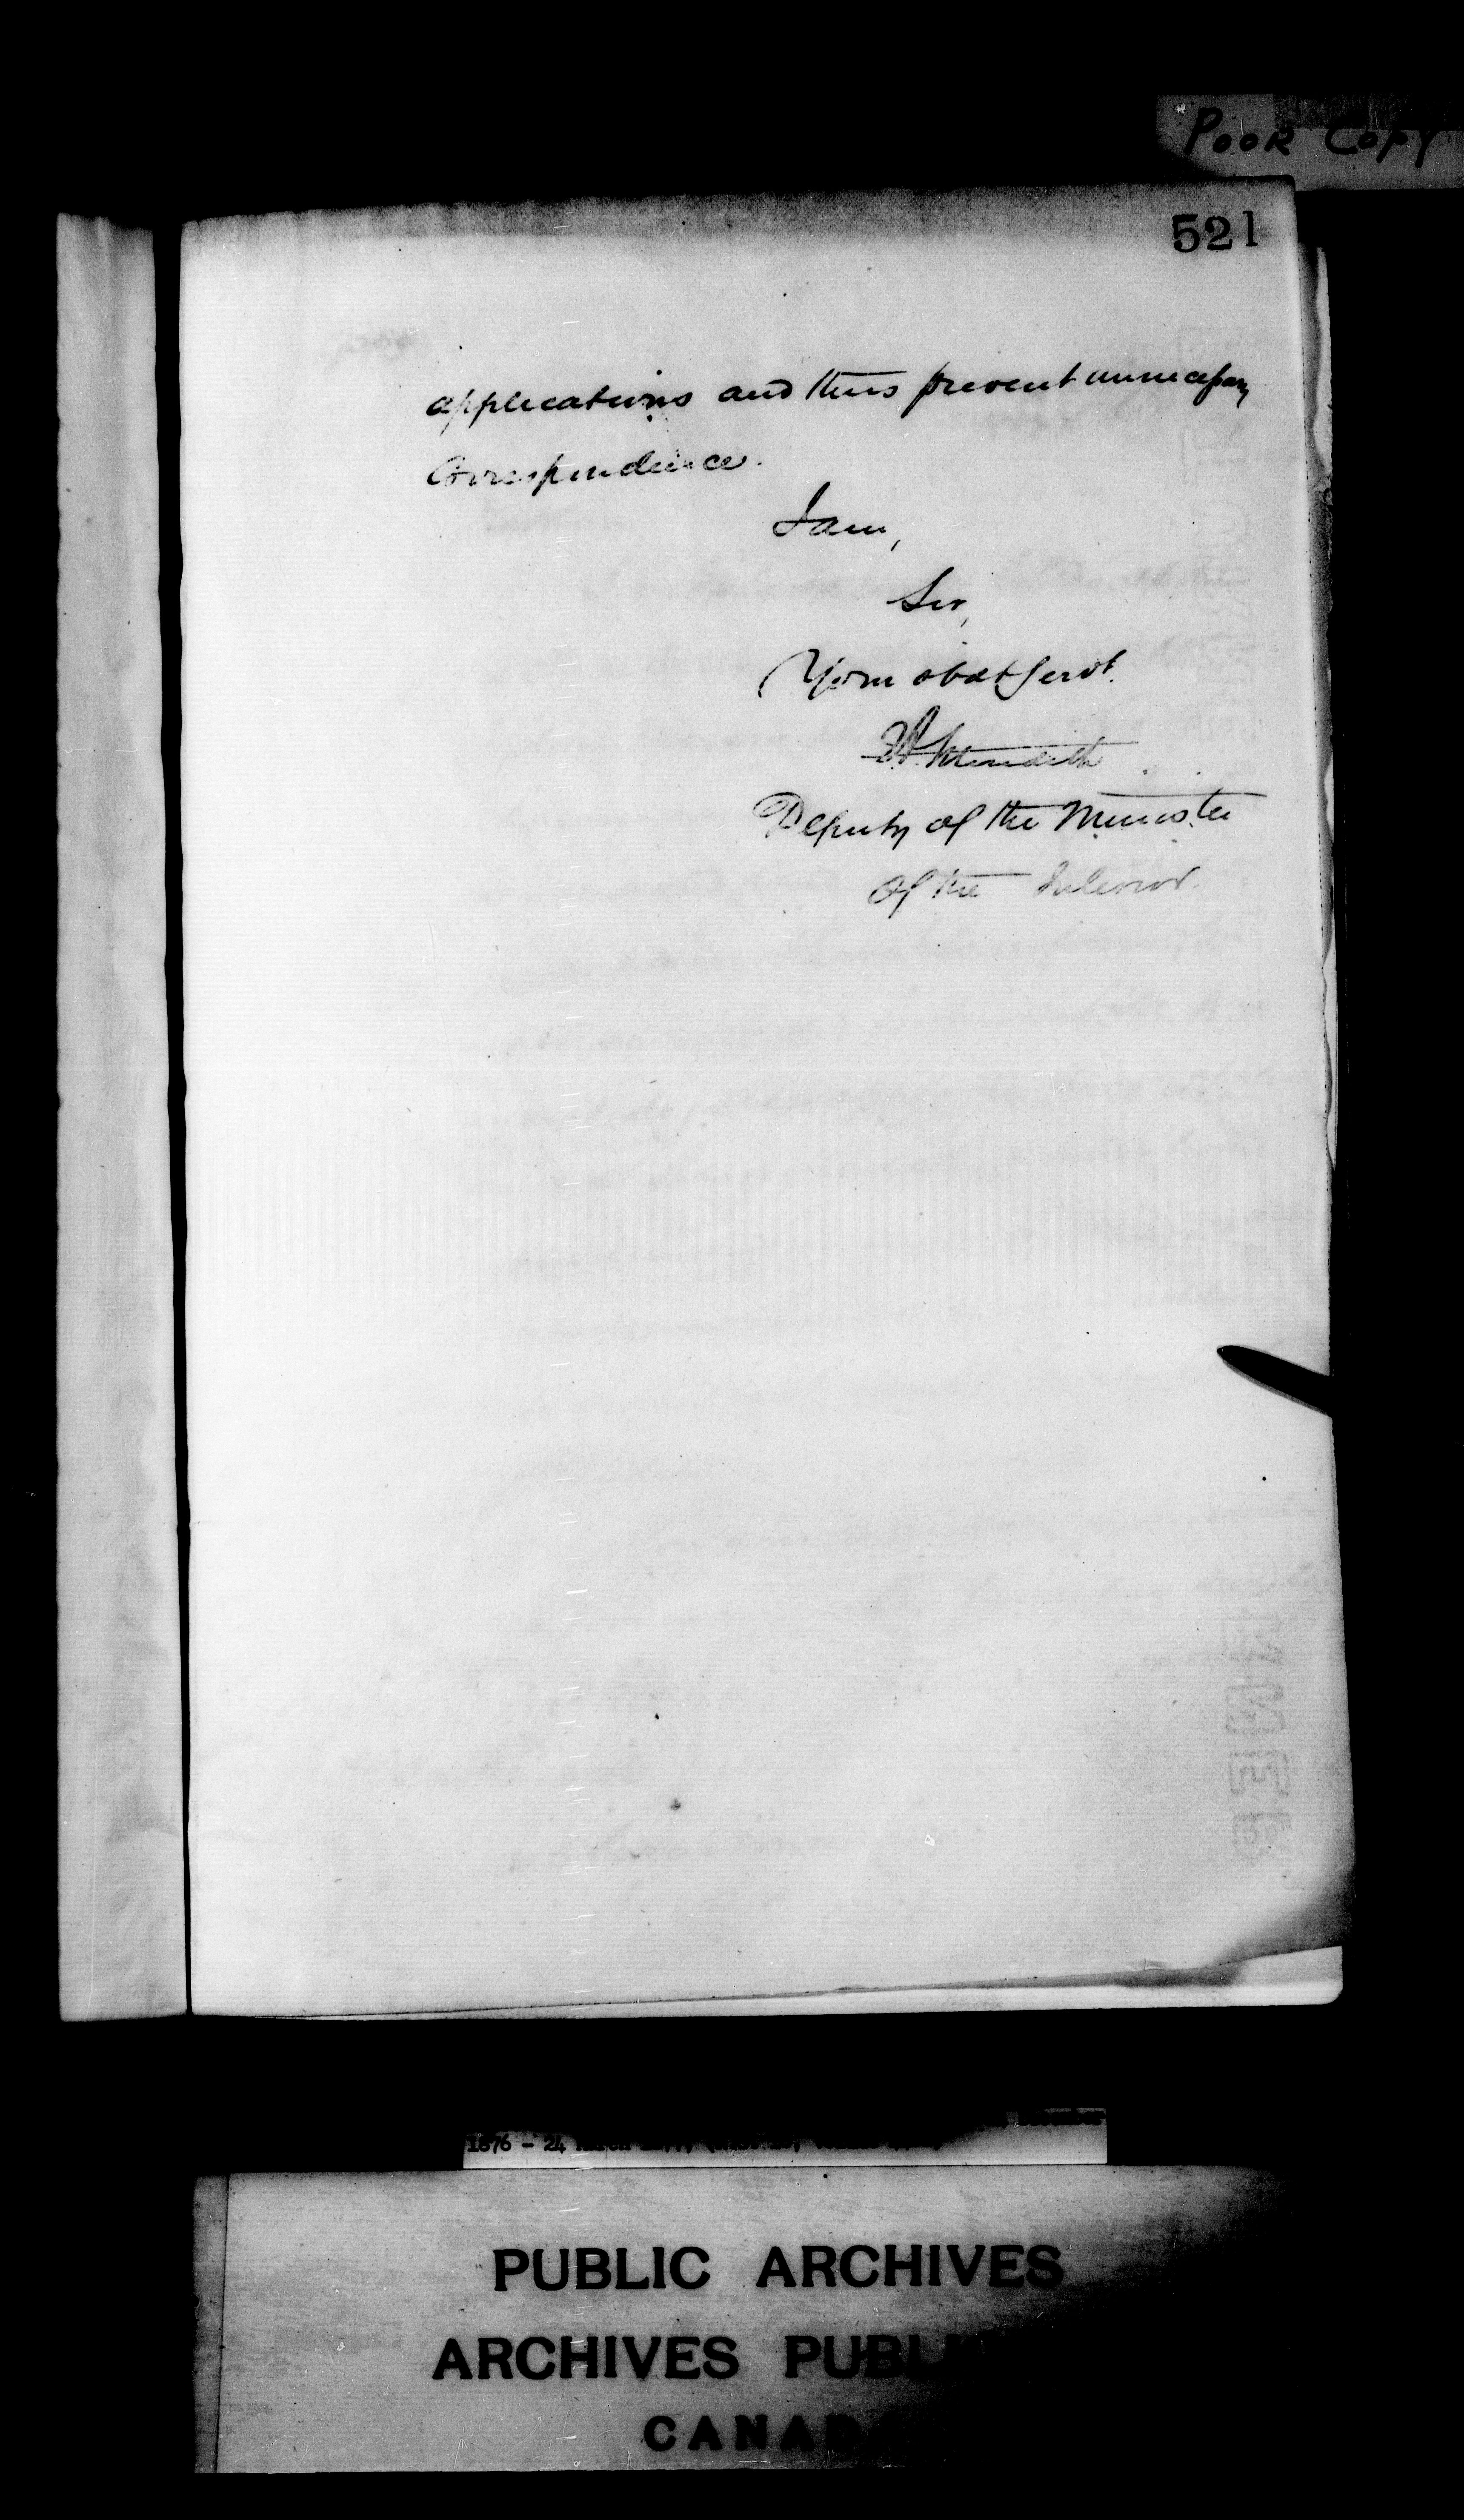 POOR COPY
521
applications and thus prevent unnecessary
Correspondence.
I am,
Sir,
Your obdt Servt.
Meredith
Deputy of the Minister
of the Interior.
1876 - 24
PUBLIC ARCHIVES
ARCHIVES PUBLI
CANADA